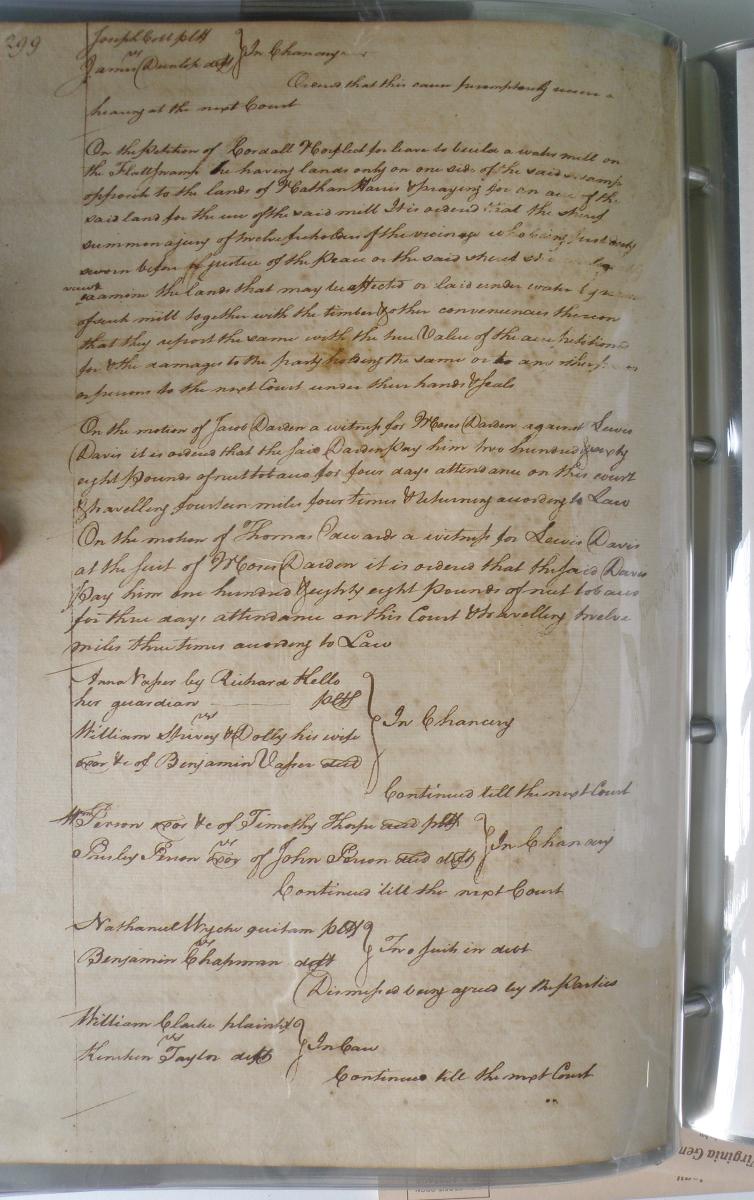 299
Joseph Cobb pltf
vs
James Dunlop deft
In Chancery
Ordered that this cause peremptorily receive a
hearing at the next Court
On the Petition of for leave to build a water mill on
the Flatt swamp he having lands only on one side of the said swamp
opposite to the lands of Nathan Harris & praying for an acre of the
said land for the use of the said mill It is ordered that the sheriff
summon a jury of twelve freeholders of the vicinage who being first duly
sworn before justice of the Peace or the said sheriff
view &
examine the lands that may be affected or laid under water by
of such mill together with the timber & other conveniences thereon
that they report the same with the true Value of the acre petitioned
for & the damages to the party holding the same or to any other person
or persons to the next Court under their hands & seals
On the motion of Jacob Darden a witness for Moses Darden against Lewis
Davis it is ordered that the said Darden Pay him two hundred & sixty
eight Pounds of nett tobacco for four days attendance on this court
& travelling fourteen miles four times & returning according to Law
On the motion of Thomas Edwards a witness for Lewis Davis
at the suit of Moses Darden it is ordered that the said Davis
Pay him one hundred & eighty eight Pounds of nett tobacco
for three days attendance on this Court & travelling twelve
miles three times according to Law
Anna Vasser by Richard Kello
her guardian pltf
vs
William Spivey & Dolly his wife
Exor &c of Benjamin Vasser decd
In Chancery
Continued till the next Court
Wm Person exor &c of Timothy Thorpe decd pltf
vs
Presley Person Exor of John Person decd deft
In Chancery
Continued till the next Court
Nathaniel Wyche quitam pltf
vs
Benjamin Chapman deft
Two suits in debt
Dismissed being agreed by the Parties
William Clarke plaintif
vs
Kinchen Taylor deft
In Case
Continued till the next Court
Virginia Gen